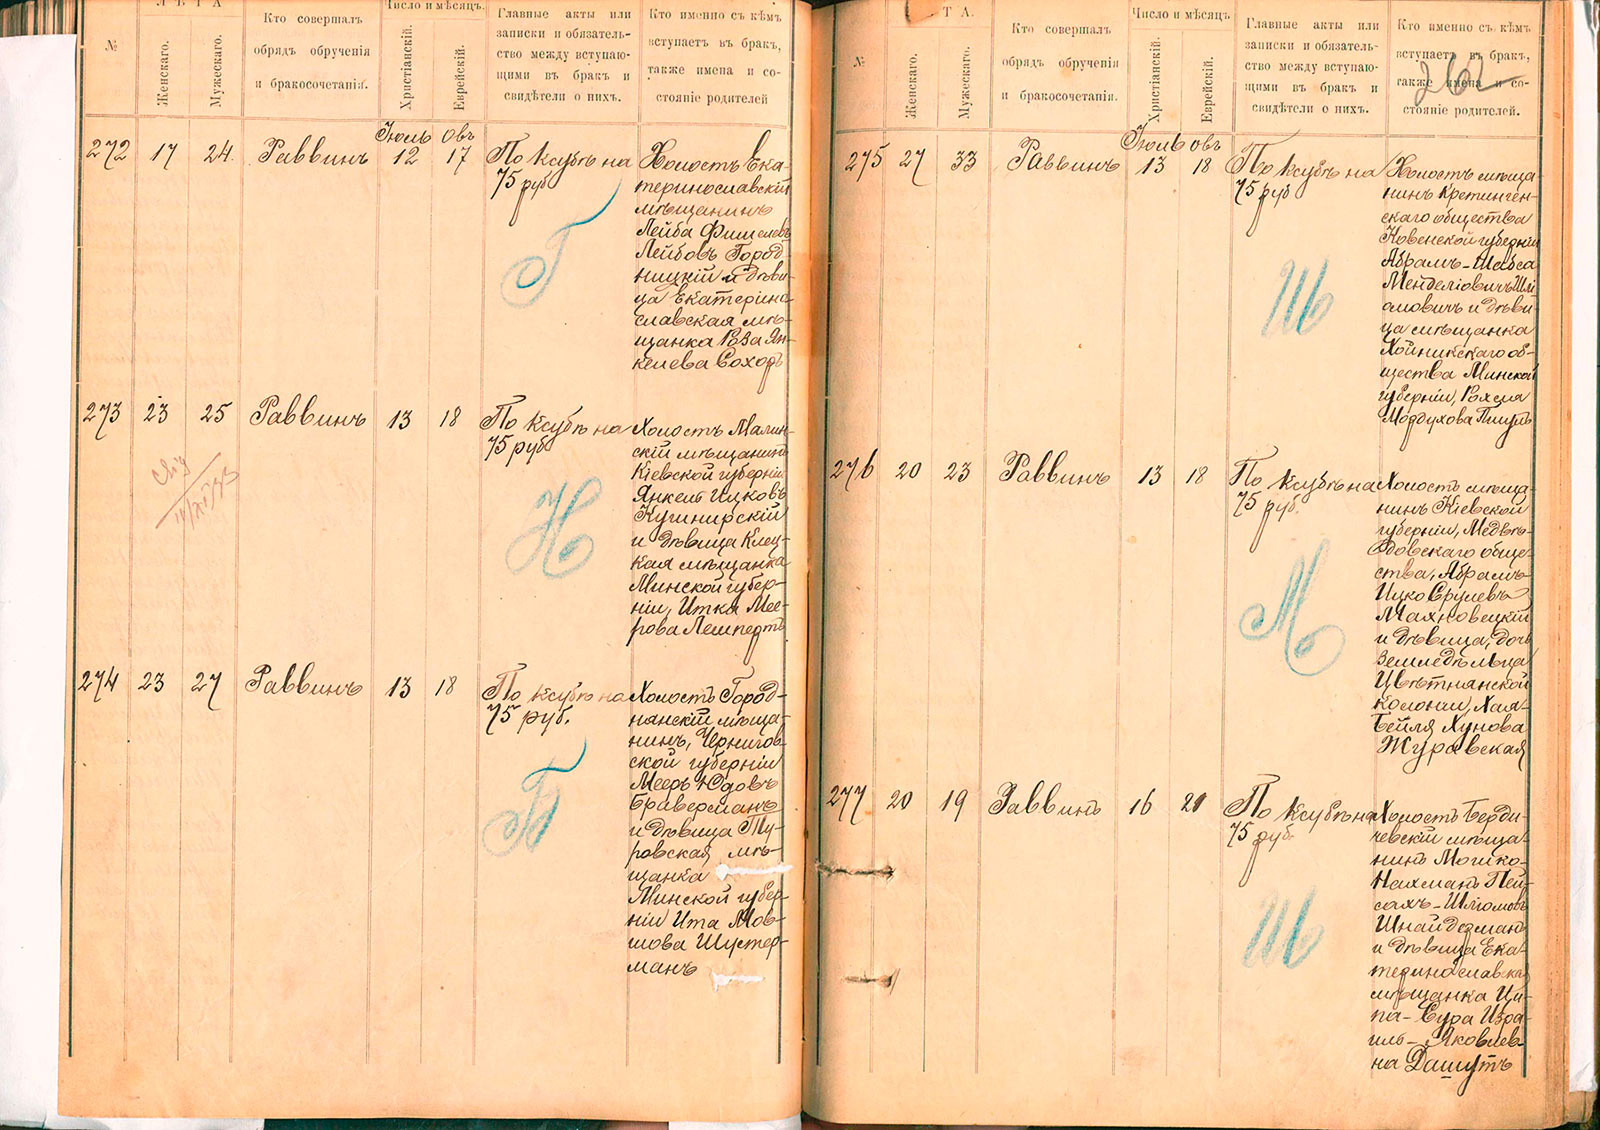 ЛѢТА
№
Женскаго.
Мужескаго.
Кто совершалъ
обрядъ обрученія
и бракосочетанія.
Число и мѣсяцъ.
Христіанскій.
Еврейскій.
Главные акты или
записки и обязатель-
ство между вступаю-
щими въ бракъ и
свидѣтели о нихъ.
Кто именно съ кѣмъ
вступаетъ въ бракъ,
также имена и со-
стояніе родителей
Іюль Овъ
272 17 24. Раввинъ 12 17
По ксубѣ на
75 руб
Г
Холостъ Ека-
теринославскій
мѣщанинъ
Лейба Фишелевъ
Лейбовъ Город-
ницкій и дѣви-
ца Екатерино-
славская мѣ-
щанка Роза Ян-
келева Сохоръ
273 23 25 Раввинъ 13 18
По ксубѣ на
75 руб
Н
Холостъ Малин-
скій мѣщанинъ
Кіевской губерніи
Янкель Ицковъ
Кушнирскій
и дѣвица Клец-
кая мѣщанка
Минской губер-
ніи, Итка Мее-
рова Лемпертъ
274 23 27 Раввинъ 13 18
По ксубѣ на
75 руб.
Б
Холостъ Город-
нянскій мѣща-
нинъ, Чернигов-
ской губерніи
Мееръ Юдовъ
Браверманъ
и дѣвица Ту-
ровская мѣ-
щанка
Минской губер-
ніи Ита Мов-
шова Шустер-
манъ
ТА.
№
Женскаго.
Мужескаго.
Кто совершалъ
обрядъ обрученія
и бракосочетанія.
Число и мѣсяцъ
Христіанскій.
Еврейскій.
Главные акты или
записки и обязатель-
ство между вступаю-
щими въ бракъ и
свидѣтели о нихъ.
Кто именно съ кѣмъ
вступаетъ въ бракъ,
также имена и со-
стояніе родителей.
262
Іюль овъ
275 27 33 Раввинъ 13 18
По ксубѣ на
75 руб
Ш
Холостъ мѣща-
нинъ Кретинген-
скаго общества
Ковенской губерніи
Абрамъ-Шебса
Менделіовичъ Шлі-
омовичъ и дѣви-
ца мѣщанка
Хойникскаго об-
щества Минской
губерніи, Рохля
Мордухова
276 20 23 Раввинъ 13 18
По ксубѣ на
75 руб.
М
Холостъ мѣща-
нинъ Кіевской
губерніи, Медвѣ-
довскаго обще-
ства, Абрамъ-
Ицко Срулевъ
Махновецкій
и дѣвица, дочь
земледѣльца
Цвѣтнянской
колоніи, Хая-
Бейля Хунова
Журавская
277 20 19 Раввинъ 16 21
По ксубѣ на
75 руб.
Ш
Холостъ Берди-
чевскій мѣща-
нинъ Мошко-
Нахманъ Пей-
сахъ-Шліомовъ
Шнайдерманъ
и дѣвица Ека-
теринославская
мѣщанка Ци-
па-Сура Изра-
иль-Яковлев-
на Дашутъ